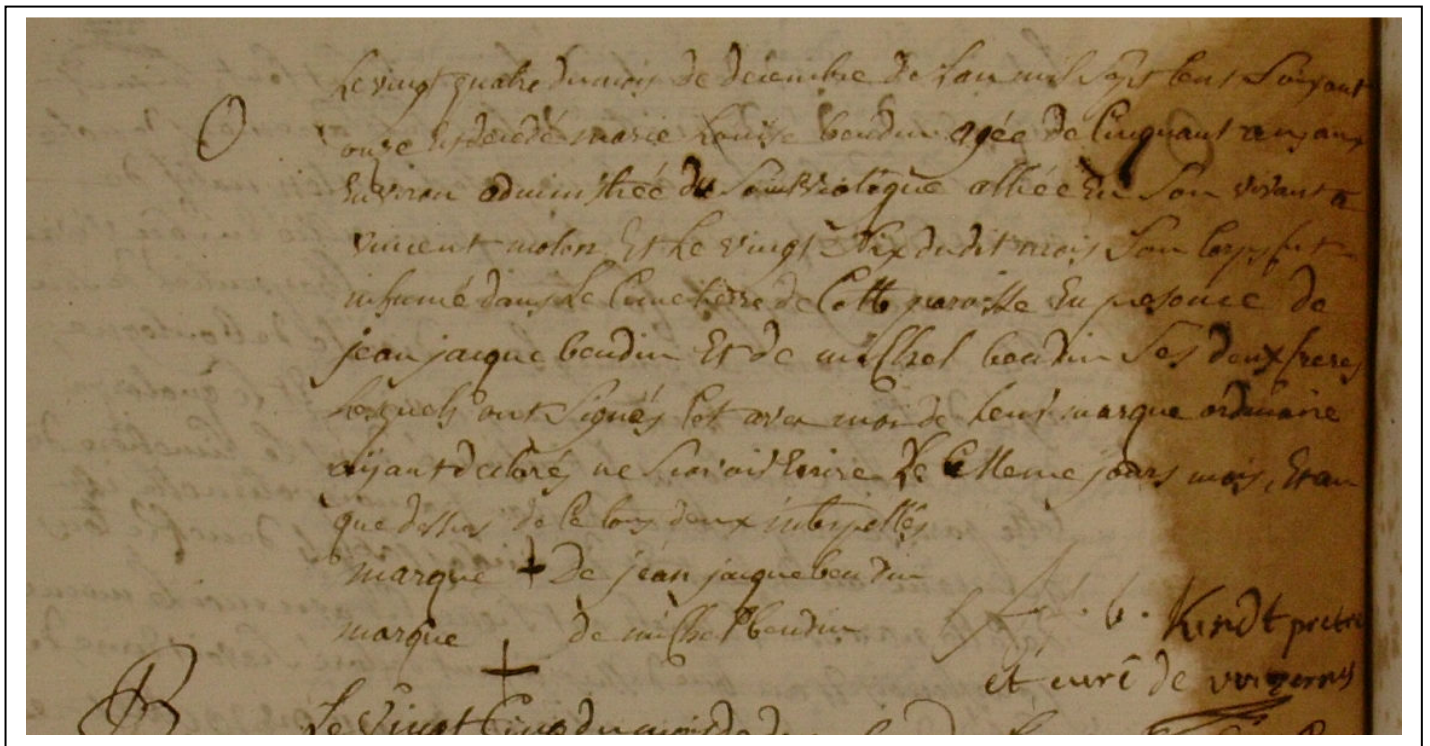 O
Le vingt quatre du mois de decembre de l'an mil sept cent soixant
onze est decedé marie Louise beudin agée de cinquant ans
Environ administrée du alliée En son vivant a
vincent molon Et Le vingt six dudit mois son corps fut
inhumé dans Le Cimetierre de Cette paroisse En presence de
jean jacque beudin Et de michel beudin ses deux freres
Lesquels ont signés Cet avec moi de Leur marque ordinaire
aijant declaré ne scavoir Ecrire Le jours mois, Et an
que dessus de ce tous deux interpellés
marque + De jean jacque beudin
marque + de michel beudin
Kindt pretre
et curé de
B
Le vingt Cinq du mois de